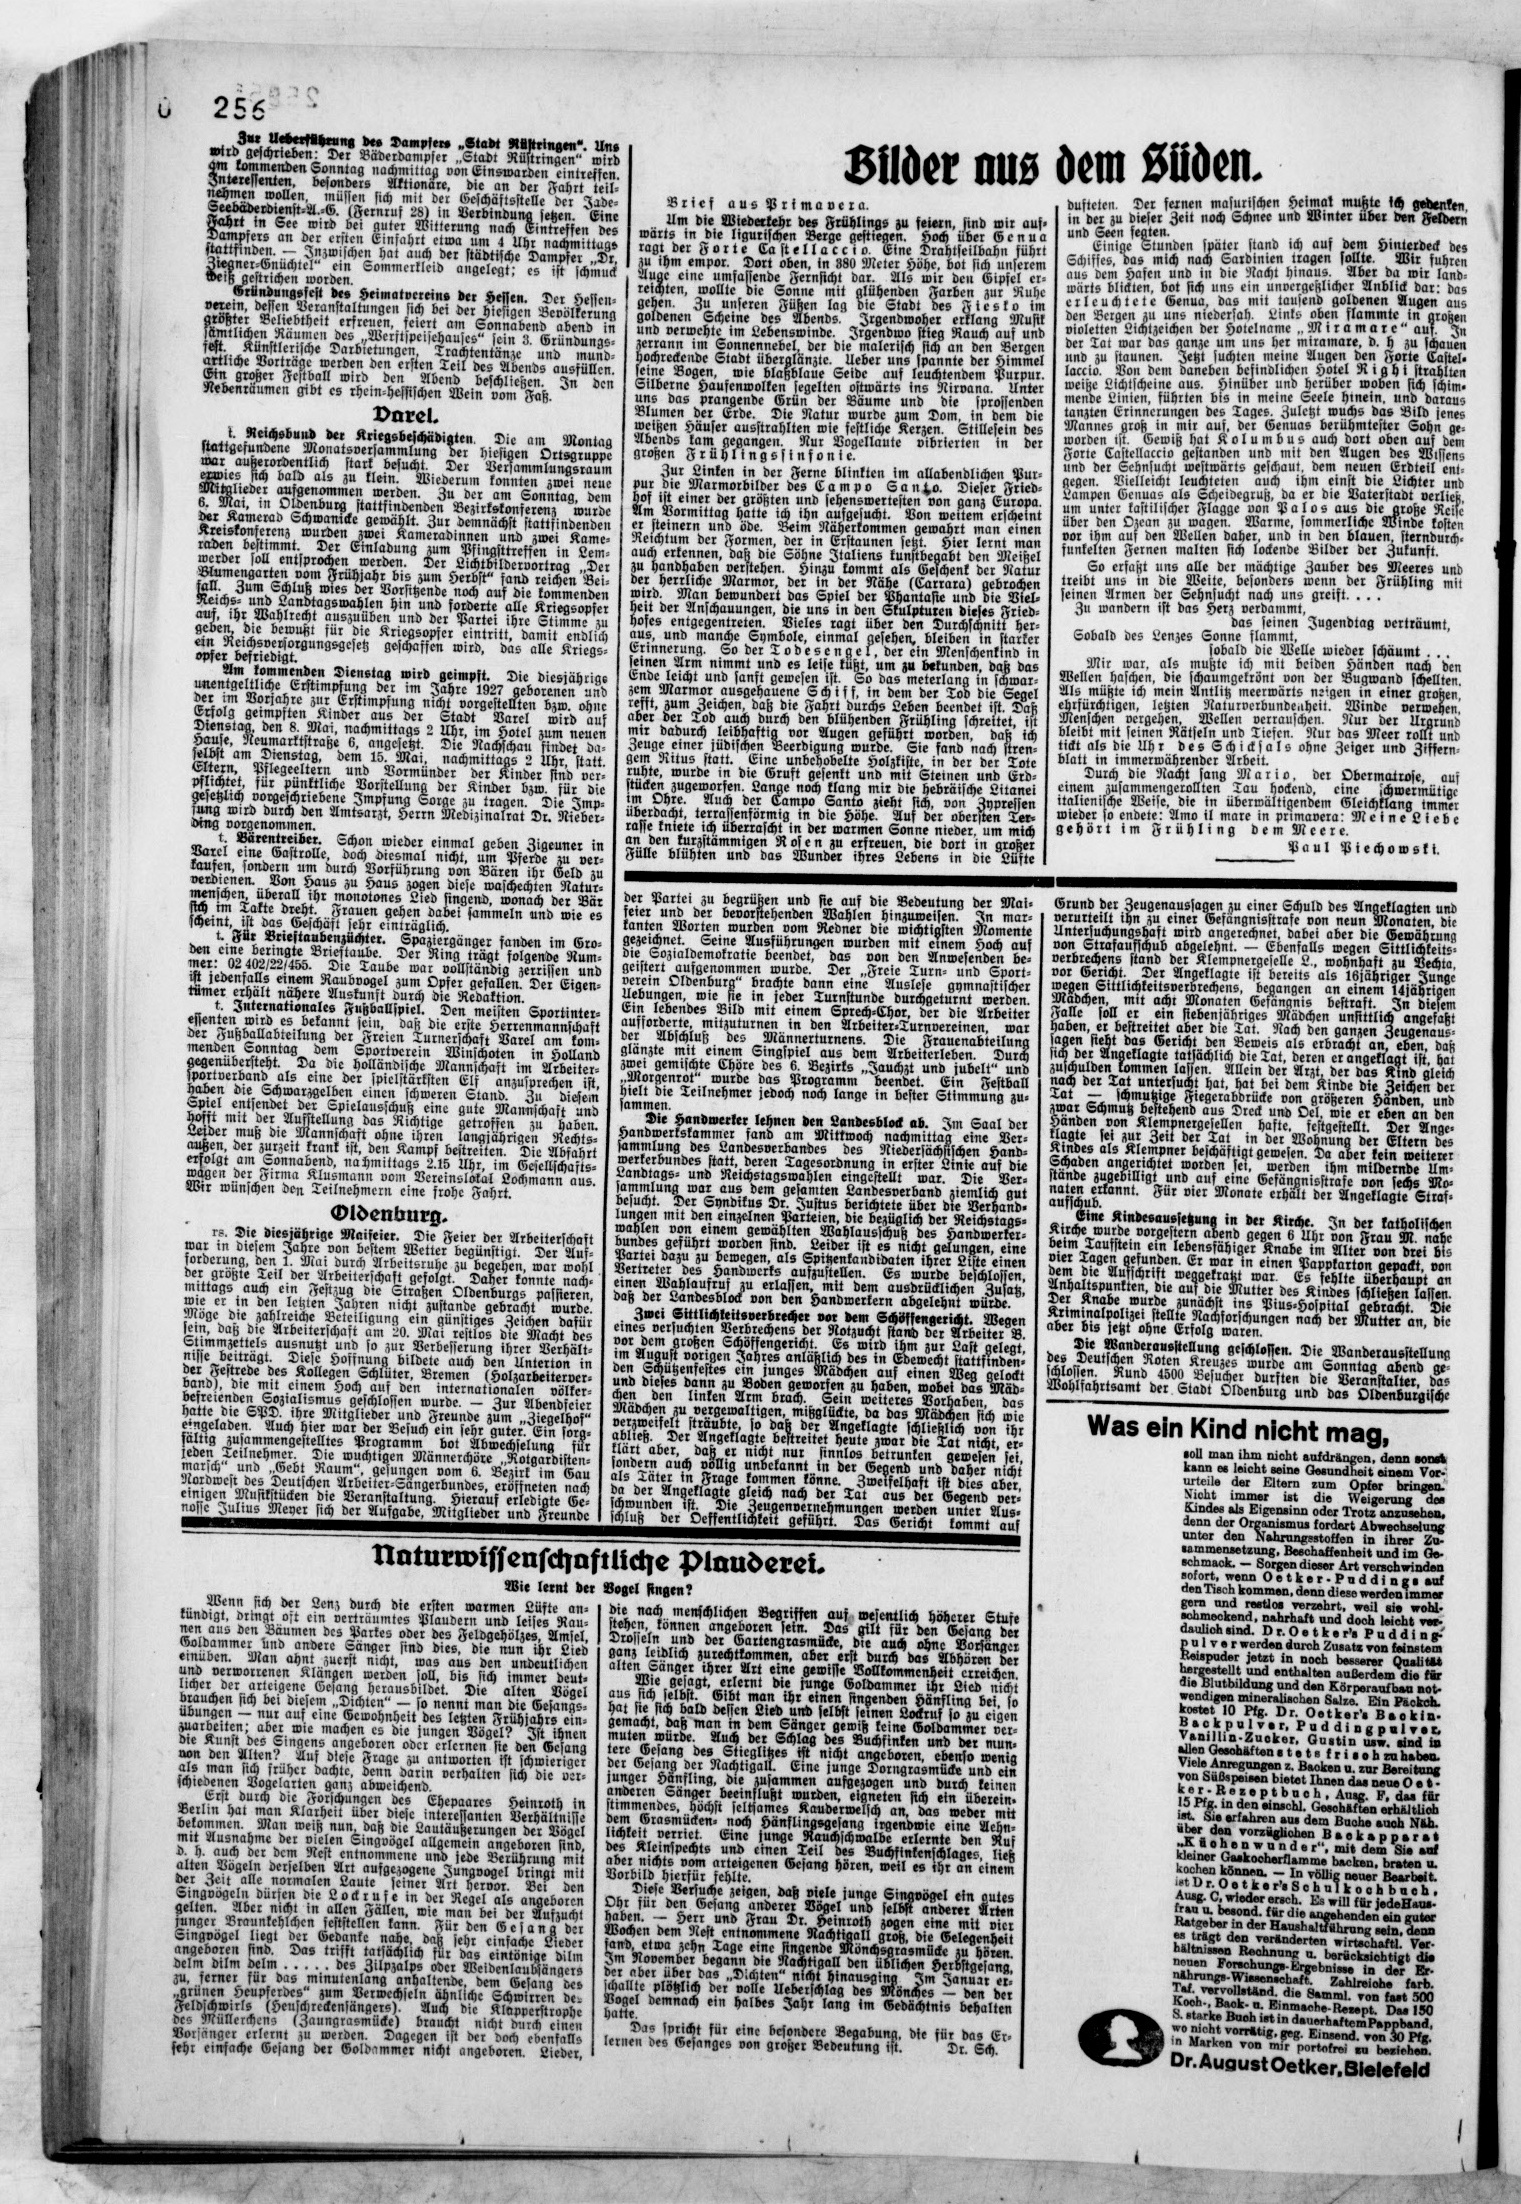 256
Zur Ueberführung des Dampfers „Stadt Rüstringen“. Uns
wird geschrieben: Der Bäderdampfer „Stadt Rüstringen“ wird
am kommenden Sonntag nachmittag von Einswarden eintreffen.
Interessenten, besonders Aktionäre, die an der Fahrt teil-
nehmen wollen, müssen sich mit der Geschäftsstelle der Jade-
Seebäderdienst-A.-G. (Fernruf 28) in Verbindung setzen. Eine
Fahrt in See wird bei guter Witterung nach Eintreffen des
Dampfers an der ersten Einfahrt etwa um 4 Uhr nachmittags
stattfinden. — Inzwischen hat auch der städtische Dampfer „Dr.
Ziegner-Gnüchtel“ ein Sommerkleid angelegt; es ist schmuck
weiß gestrichen worden.
Gründungsfest des Heimatvereins der Hessen. Der Hessen-
verein, dessen Veranstaltungen sich bei der hiesigen Bevölkerung
größter Beliebtheit erfreuen, feiert am Sonnabend abend in
sämtlichen Räumen des „Werftspeisehauses“ sein 3. Gründungs-
fest. Künstlerische Darbietungen, Trachtentänze und mund-
artliche Vorträge werden den ersten Teil des Abends ausfüllen.
Ein großer Festball wird den Abend beschließen. In den
Nebenräumen gibt es rhein-hessischen Wein vom Faß.
Varel.
t. Reichsbund der Kriegsbeschädigten. Die am Montag
stattgefundene Monatsversammlung der hiesigen Ortsgruppe
war außerordentlich stark besucht. Der Versammlungsraum
erwies sich bald als zu klein. Wiederum konnten zwei neue
Mitglieder aufgenommen werden. Zu der am Sonntag, dem
6. Mai, in Oldenburg stattfindenden Bezirkskonferenz wurde
der Kamerad Schwanicke gewählt. Zur demnächst stattfindenden
Kreiskonferenz wurden zwei Kameradinnen und zwei Kame-
raden bestimmt. Der Einladung zum Pfingsttreffen in Lem-
werder soll entsprochen werden. Der Lichtbildervortrag „Der
Blumengarten vom Frühjahr bis zum Herbst“ fand reichen Bei-
fall. Zum Schluß wies der Vorsitzende noch auf die kommenden
Reichs- und Landtagswahlen hin und forderte alle Kriegsopfer
auf, ihr Wahlrecht auszuüben und der Partei ihre Stimme zu
geben, die bewußt für die Kriegsopfer eintritt, damit endlich
ein Reichsversorgungsgesetz geschaffen wird, das alle Kriegs-
opfer befriedigt.
Am kommenden Dienstag wird geimpft. Die diesjährige
unentgeltliche Erstimpfung der im Jahre 1927 geborenen und
der im Vorjahre zur Erstimpfung nicht vorgestellten bzw. ohne
Erfolg geimpften Kinder aus der Stadt Varel wird auf
Dienstag, den 8. Mai, nachmittags 2 Uhr, im Hotel zum neuen
Hause, Neumarktstraße 6, angesetzt. Die Nachschau findet da-
selbst am Dienstag, dem 15. Mai, nachmittags 2 Uhr, statt.
Eltern, Pflegeeltern und Vormünder der Kinder sind ver-
pflichtet, für pünktliche Vorstellung der Kinder bzw. für die
gesetzlich vorgeschriebene Impfung Sorge zu tragen. Die Imp-
fung wird durch den Amtsarzt, Herrn Medizinalrat Dr. Nieber-
ding vorgenommen.
t. Bärentreiber. Schon wieder einmal geben Zigeuner in
Varel eine Gastrolle, doch diesmal nicht, um Pferde zu ver-
kaufen, sondern um durch Vorführung von Bären ihr Geld zu
verdienen. Von Haus zu Haus zogen diese waschechten Natur-
menschen, überall ihr monotones Lied singend, wonach der Bär
sich im Takte dreht. Frauen gehen dabei sammeln und wie es
scheint, ist das Geschäft sehr einträglich.
t. Für Brieftaubenzüchter. Spaziergänger fanden im Gro-
den eine beringte Brieftaube. Der Ring trägt folgende Num-
mer: 02 402/22/455. Die Taube war vollständig zerrissen und
ist jedenfalls einem Raubvogel zum Opfer gefallen. Der Eigen-
tümer erhält nähere Auskunft durch die Redaktion.
t. Internationales Fußballspiel. Den meisten Sportinter-
essenten wird es bekannt sein, daß die erste Herrenmannschaft
der Fußballabteilung der Freien Turnerschaft Varel am kom-
menden Sonntag dem Sportverein Winschoten in Holland
gegenübersteht. Da die holländische Mannschaft im Arbeiter-
sportverband als eine der spielstärksten Elf anzusprechen ist,
haben die Schwarzgelben einen schweren Stand. Zu diesem
Spiel entsendet der Spielausschuß eine gute Mannschaft und
hofft mit der Aufstellung das Richtige getroffen zu haben.
Leider muß die Mannschaft ohne ihren langjährigen Rechts-
außen, der zurzeit krank ist, den Kampf bestreiten. Die Abfahrt
erfolgt am Sonnabend, nachmittags 2.15 Uhr, im Gesellschafts-
wagen der Firma Klusmann vom Vereinslokal Lochmann aus.
Wir wünschen den Teilnehmern eine frohe Fahrt.
Oldenburg.
rs. Die diesjährige Maifeier. Die Feier der Arbeiterschaft
war in diesem Jahre von bestem Wetter begünstigt. Der Auf-
forderung, den 1. Mai durch Arbeitsruhe zu begehen, war wohl
der größte Teil der Arbeiterschaft gefolgt. Daher konnte nach-
mittags auch ein Festzug die Straßen Oldenburgs passieren,
wie er in den letzten Jahren nicht zustande gebracht wurde.
Möge die zahlreiche Beteiligung ein günstiges Zeichen dafür
sein, daß die Arbeiterschaft am 20. Mai restlos die Macht des
Stimmzettels ausnutzt und so zur Verbesserung ihrer Verhält-
nisse beiträgt. Diese Hoffnung bildete auch den Unterton in
der Festrede des Kollegen Schlüter, Bremen (Holzarbeiterver-
band), die mit einem Hoch auf den internationalen völker-
befreienden Sozialismus geschlossen wurde. — Zur Abendfeier
hatte die SPD. ihre Mitglieder und Freunde zum „Ziegelhof“
eingeladen. Auch hier war der Besuch ein sehr guter. Ein sorg-
fältig zusammengestelltes Programm bot Abwechselung für
jeden Teilnehmer. Die wuchtigen Männerchöre „Rotgardisten-
marsch“ und „Gebt Raum“, gesungen vom 6. Bezirk im Gau
Nordwest des Deutschen Arbeiter-Sängerbundes, eröffneten nach
einigen Musikstücken die Veranstaltung. Hierauf erledigte Ge-
nosse Julius Meyer sich der Aufgabe, Mitglieder und Freunde
Bilder aus dem Süden.
Brief aus Primavera.
Um die Wiederkehr des Frühlings zu feiern, sind wir auf-
wärts in die ligurischen Berge gestiegen. Hoch über Genua
ragt der Forte Castellaccio. Eine Drahtseilbahn führt
zu ihm empor. Dort oben, in 380 Meter Höhe, bot sich unserem
Auge eine umfassende Fernsicht dar. Als wir den Gipfel er-
reichten, wollte die Sonne mit glühenden Farben zur Ruhe
gehen. Zu unseren Füßen lag die Stadt des Fiesko im
goldenen Scheine des Abends. Irgendwoher erklang Musik
und verwehte im Lebenswinde. Irgendwo stieg Rauch auf und
zerrann im Sonnennebel, der die malerisch sich an den Bergen
hochreckende Stadt überglänzte. Ueber uns spannte der Himmel
seine Bogen, wie blaßblaue Seide auf leuchtendem Purpur.
Silberne Haufenwolken segelten ostwärts ins Nirvana. Unter
uns das prangende Grün der Bäume und die sprossenden
Blumen der Erde. Die Natur wurde zum Dom, in dem die
weißen Häuser ausstrahlten wie festliche Kerzen. Stillesein des
Abends kam gegangen. Nur Vogellaute vibrierten in der
großen Frühlingssinfonie.
Zur Linken in der Ferne blinkten im allabendlichen Pur-
pur die Marmorbilder des Campo Santo. Dieser Fried-
hof ist einer der größten und sehenswertesten von ganz Europa.
Am Vormittag hatte ich ihn aufgesucht. Von weitem erscheint
er steinern und öde. Beim Näherkommen gewahrt man einen
Reichtum der Formen, der in Erstaunen setzt. Hier lernt man
auch erkennen, daß die Söhne Italiens kunstbegabt den Meißel
zu handhaben verstehen. Hinzu kommt als Geschenk der Natur
der herrliche Marmor, der in der Nähe (Carrara) gebrochen
wird. Man bewundert das Spiel der Phantasie und die Viel-
heit der Anschauungen, die uns in den Skulpturen dieses Fried-
hofes entgegentreten. Vieles ragt über den Durchschnitt her-
aus, und manche Symbole, einmal gesehen, bleiben in starker
Erinnerung. So der Todesengel, der ein Menschenkind in
seinen Arm nimmt und es leise küßt, um zu bekunden, daß das
Ende leicht und sanft gewesen ist. So das meterlang in schwar-
zem Marmor ausgehauene Schiff, in dem der Tod die Segel
refft, zum Zeichen, daß die Fahrt durchs Leben beendet ist. Daß
aber der Tod auch durch den blühenden Frühling schreitet, ist
mir dadurch leibhaftig vor Augen geführt worden, daß ich
Zeuge einer jüdischen Beerdigung wurde. Sie fand nach stren-
gem Ritus statt. Eine unbehobelte Holzkiste, in der der Tote
ruhte, wurde in die Gruft gesenkt und mit Steinen und Erd-
stücken zugeworfen. Lange noch klang mir die hebräische Litanei
im Ohre. Auch der Campo Santo zieht sich, von Zypressen
überdacht, terrassenförmig in die Höhe. Auf der obersten Ter-
rasse kniete ich überrascht in der warmen Sonne nieder, um mich
an den kurzstämmigen Rosen zu erfreuen, die dort in großer
Fülle blühten und das Wunder ihres Lebens in die Lüfte
dufteten. Der fernen masurischen Heimat mußte ich gedenken,
in der zu dieser Zeit noch Schnee und Winter über den Feldern
und Seen fegten.
Einige Stunden später stand ich auf dem Hinterdeck des
Schiffes, das mich nach Sardinien tragen sollte. Wir fuhren
aus dem Hafen und in die Nacht hinaus. Aber da wir land-
wärts blickten, bot sich uns ein unvergeßlicher Anblick dar: das
erleuchtete Genua, das mit tausend goldenen Augen aus
den Bergen zu uns niedersah. Links oben flammte in großen
violetten Lichtzeichen der Hotelname „Miramare“ auf. In
der Tat war das ganze um uns her miramare, d. h zu schauen
und zu staunen. Jetzt suchten meine Augen den Forte Castel-
laccio. Von dem daneben befindlichen Hotel Righi strahlten
weiße Lichtscheine aus. Hinüber und herüber woben sich schim-
mende Linien, führten bis in meine Seele hinein, und daraus
tanzten Erinnerungen des Tages. Zuletzt wuchs das Bild jenes
Mannes groß in mir auf, der Genuas berühmtester Sohn ge-
worden ist. Gewiß hat Kolumbus auch dort oben auf dem
Forte Castellaccio gestanden und mit den Augen des Wissens
und der Sehnsucht westwärts geschaut, dem neuen Erdteil ent-
gegen. Vielleicht leuchteten auch ihm einst die Lichter und
Lampen Genuas als Scheidegruß, da er die Vaterstadt verließ,
um unter kastilischer Flagge von Palos aus die große Reise
über den Ozean zu wagen. Warme, sommerliche Winde kosten
vor ihm auf den Wellen daher, und in den blauen, sterndurch-
funkelten Fernen malten sich lockende Bilder der Zukunft.
So erfaßt uns alle der mächtige Zauber des Meeres und
treibt uns in die Weite, besonders wenn der Frühling mit
seinen Armen der Sehnsucht nach uns greift. . . .
Zu wandern ist das Herz verdammt,
das seinen Jugendtag verträumt,
Sobald des Lenzes Sonne flammt,
sobald die Welle wieder schäumt . . .
Mir war, als mußte ich mit beiden Händen nach den
Wellen haschen, die schaumgekrönt von der Bugwand schellten.
Als müßte ich mein Antlitz meerwärts neigen in einer großen,
ehrfürchtigen, letzten Naturverbundenheit. Winde verwehen,
Menschen vergehen, Wellen verrauschen. Nur der Urgrund
bleibt mit seinen Rätseln und Tiefen. Nur das Meer rollt und
tickt als die Uhr des Schicksals ohne Zeiger und Ziffern-
blatt in immerwährender Arbeit.
Durch die Nacht sang Mario, der Obermatrose, auf
einem zusammengerollten Tau hockend, eine schwermütige
italienische Weise, die in überwältigendem Gleichklang immer
wieder so endete: Amo il mare in primavera: Meine Liebe
gehört im Frühling dem Meere.
Paul Piechowski.
der Partei zu begrüßen und sie auf die Bedeutung der Mai-
feier und der bevorstehenden Wahlen hinzuweisen. In mar-
kanten Worten wurden vom Redner die wichtigsten Momente
gezeichnet. Seine Ausführungen wurden mit einem Hoch auf
die Sozialdemokratie beendet, das von den Anwesenden be-
geistert aufgenommen wurde. Der „Freie Turn- und Sport-
verein Oldenburg“ brachte dann eine Auslese gymnastischer
Uebungen, wie sie in jeder Turnstunde durchgeturnt werden.
Ein lebendes Bild mit einem Sprech-Chor, der die Arbeiter
aufforderte, mitzuturnen in den Arbeiter-Turnvereinen, war
der Abschluß des Männerturnens. Die Frauenabteilung
glänzte mit einem Singspiel aus dem Arbeiterleben. Durch
zwei gemischte Chöre des 6. Bezirks „Jauchzt und jubelt“ und
„Morgenrot“ wurde das Programm beendet. Ein Festball
hielt die Teilnehmer jedoch noch lange in bester Stimmung zu-
sammen.
Die Handwerker lehnen den Landesblock ab. Im Saal der
Handwerkskammer fand am Mittwoch nachmittag eine Ver-
sammlung des Landesverbandes des Niedersächsischen Hand-
werkerbundes statt, deren Tagesordnung in erster Linie auf die
Landtags- und Reichstagswahlen eingestellt war. Die Ver-
sammlung war aus dem gesamten Landesverband ziemlich gut
besucht. Der Syndikus Dr. Justus berichtete über die Verhand-
lungen mit den einzelnen Parteien, die bezüglich der Reichstags-
wahlen von einem gewählten Wahlausschuß des Handwerker-
bundes geführt worden sind. Leider ist es nicht gelungen, eine
Partei dazu zu bewegen, als Spitzenkandidaten ihrer Liste einen
Vertreter des Handwerks aufzustellen. Es wurde beschlossen,
einen Wahlaufruf zu erlassen, mit dem ausdrücklichen Zusatz,
daß der Landesblock von den Handwerkern abgelehnt würde.
Zwei Sittlichkeitsverbrecher vor dem Schöffengericht. Wegen
eines versuchten Verbrechens der Notzucht stand der Arbeiter B.
vor dem großen Schöffengericht. Es wird ihm zur Last gelegt,
im August vorigen Jahres anläßlich des in Edewecht stattfinden-
den Schützenfestes ein junges Mädchen auf einen Weg gelockt
und dieses dann zu Boden geworfen zu haben, wobei das Mäd-
chen den linken Arm brach. Sein weiteres Vorhaben, das
Mädchen zu vergewaltigen, mißglückte, da das Mädchen sich wie
verzweifelt sträubte, so daß der Angeklagte schließlich von ihr
abließ. Der Angeklagte bestreitet heute zwar die Tat nicht, er-
klärt aber, daß er nicht nur sinnlos betrunken gewesen sei,
sondern auch völlig unbekannt in der Gegend und daher nicht
als Täter in Frage kommen könne. Zweifelhaft ist dies aber,
da der Angeklagte gleich nach der Tat aus der Gegend ver-
schwunden ist. Die Zeugenvernehmungen werden unter Aus-
schluß der Oeffentlichkeit geführt. Das Gericht kommt auf
Grund der Zeugenaussagen zu einer Schuld des Angeklagten und
verurteilt ihn zu einer Gefängnisstrafe von neun Monaten, die
Untersuchungshaft wird angerechnet, dabei aber die Gewährung
von Strafaufschub abgelehnt. — Ebenfalls wegen Sittlichkeits-
verbrechens stand der Klempnergeselle L., wohnhaft zu Vechta,
vor Gericht. Der Angeklagte ist bereits als 16jähriger Junge
wegen Sittlichkeitsverbrechens, begangen an einem 14jährigen
Mädchen, mit acht Monaten Gefängnis bestraft. In diesem
Falle soll er ein siebenjähriges Mädchen unsittlich angefaßt
haben, er bestreitet aber die Tat. Nach den ganzen Zeugenaus-
sagen sieht das Gericht den Beweis als erbracht an, eben, daß
sich der Angeklagte tatsächlich die Tat, deren er angeklagt ist, hat
zuschulden kommen lassen. Allein der Arzt, der das Kind gleich
nach der Tat untersucht hat, hat bei dem Kinde die Zeichen der
Tat — schmutzige Fiegerabdrücke von größeren Händen, und
zwar Schmutz bestehend aus Dreck und Oel, wie er eben an den
Händen von Klempnergesellen hafte, festgestellt. Der Ange-
klagte sei zur Zeit der Tat in der Wohnung der Eltern des
Kindes als Klempner beschäftigt gewesen. Da aber kein weiterer
Schaden angerichtet worden sei, werden ihm mildernde Um-
stände zugebilligt und auf eine Gefängnisstrafe von sechs Mo-
naten erkannt. Für vier Monate erhält der Angeklagte Straf-
aufschub.
Eine Kindesaussetzung in der Kirche. In der katholischen
Kirche wurde vorgestern abend gegen 6 Uhr von Frau M. nahe
beim Taufstein ein lebensfähiger Knabe im Alter von drei bis
vier Tagen gefunden. Er war in einen Pappkarton gepackt, von
dem die Aufschrift weggekratzt war. Es fehlte überhaupt an
Anhaltspunkten, die auf die Mutter des Kindes schließen lassen.
Der Knabe wurde zunächst ins Pius-Hospital gebracht. Die
Kriminalpolizei stellte Nachforschungen nach der Mutter an, die
aber bis jetzt ohne Erfolg waren.
Die Wanderausstellung geschlossen. Die Wanderausstellung
des Deutschen Roten Kreuzes wurde am Sonntag abend ge-
schlossen. Rund 4500 Besucher durften die Veranstalter, das
Wohlfahrtsamt der Stadt Oldenburg und das Oldenburgische
Naturwissenschaftliche Plauderei.
Wie lernt der Vogel singen?
Wenn sich der Lenz durch die ersten warmen Lüfte an-
kündigt, dringt oft ein verträumtes Plaudern und leises Rau-
nen aus den Bäumen des Parkes oder des Feldgehölzes, Amsel,
Goldammer und andere Sänger sind dies, die nun ihr Lied
einüben. Man ahnt zuerst nicht, was aus den undeutlichen
und verworrenen Klängen werden soll, bis sich immer deut-
licher der arteigene Gesang herausbildet. Die alten Vögel
brauchen sich bei diesem „Dichten“ — so nennt man die Gesangs-
übungen — nur auf eine Gewohnheit des letzten Frühjahrs ein-
zuarbeiten; aber wie machen es die jungen Vögel? Ist ihnen
die Kunst des Singens angeboren oder erlernen sie den Gesang
von den Alten? Auf diese Frage zu antworten ist schwieriger
als man sich früher dachte, denn darin verhalten sich die ver-
schiedenen Vogelarten ganz abweichend.
Erst durch die Forschungen des Ehepaares Heinroth in
Berlin hat man Klarheit über diese interessanten Verhältnisse
bekommen. Man weiß nun, daß die Lautäußerungen der Vögel
mit Ausnahme der vielen Singvögel allgemein angeboren sind,
d. h. auch der dem Nest entnommene und jede Berührung mit
alten Vögeln derselben Art aufgezogene Jungvogel bringt mit
der Zeit alle normalen Laute seiner Art hervor. Bei den
Singvögeln dürfen die Lockrufe in der Regel als angeboren
gelten. Aber nicht in allen Fällen, wie man bei der Aufzucht
junger Braunkehlchen feststellen kann. Für den Gesang der
Singvögel liegt der Gedanke nahe, daß sehr einfache Lieder
angeboren sind. Das trifft tatsächlich für das eintönige dilm
delm dilm delm . . . . . des Zilpzalps oder Weidenlaubsängers
zu, ferner für das minutenlang anhaltende, dem Gesang des
„grünen Heupferdes“ zum Verwechseln ähnliche Schwirren de-
Feldschwirls (Heuschreckensängers). Auch die Klapperstrophe
des Müllerchens (Zaungrasmücke) braucht nicht durch einen
Vorsänger erlernt zu werden. Dagegen ist der doch ebenfalls
sehr einfache Gesang der Goldammer nicht angeboren. Lieder,
die nach menschlichen Begriffen auf wesentlich höherer Stufe
stehen, können angeboren sein. Das gilt für den Gesang der
Drosseln und der Gartengrasmücke, die auch ohne Vorsänger
ganz leidlich zurechtkommen, aber erst durch das Abhören der
alten Sänger ihrer Art eine gewisse Vollkommenheit erreichen.
Wie gesagt, erlernt die junge Goldammer ihr Lied nicht
aus sich selbst. Gibt man ihr einen singenden Hänfling bei, so
hat sie sich bald dessen Lied und selbst seinen Lockruf so zu eigen
gemacht, daß man in dem Sänger gewiß keine Goldammer ver-
muten würde. Auch der Schlag des Buchfinken und der mun-
tere Gesang des Stieglitzes ist nicht angeboren, ebenso wenig
der Gesang der Nachtigall. Eine junge Dorngrasmücke und ein
junger Hänfling, die zusammen aufgezogen und durch keinen
anderen Sänger beeinflußt wurden, eigneten sich ein überein-
stimmendes, höchst seltsames Kauderwelsch an, das weder mit
dem Grasmücken- noch Hänflingsgesang irgendwie eine Aehn-
lichkeit verriet. Eine junge Rauchschwalbe erlernte den Ruf
des Kleinspechts und einen Teil des Buchfinkenschlages, ließ
aber nichts vom arteigenen Gesang hören, weil es ihr an einem
Vorbild hierfür fehlte.
Diese Versuche zeigen, daß viele junge Singvögel ein gutes
Ohr für den Gesang anderer Vögel und selbst anderer Arten
haben. — Herr und Frau Dr. Heinroth zogen eine mit vier
Wochen dem Nest entnommene Nachtigall groß, die Gelegenheit
fand, etwa zehn Tage eine singende Mönchsgrasmücke zu hören.
Im November begann die Nachtigall den üblichen Herbstgesang,
der aber über das „Dichten“ nicht hinausging. Im Januar er-
schallte plötzlich der volle Ueberschlag des Mönches — den der
Vogel demnach ein halbes Jahr lang im Gedächtnis behalten
hatte.
Das spricht für eine besondere Begabung, die für das Er-
lernen des Gesanges von großer Bedeutung ist. Dr. Sch.
Was ein Kind nicht mag,
soll man ihm nicht aufdrängen, denn sonst
kann es leicht seine Gesundheit einem Vor-
urteile der Eltern zum Opfer bringen.
Nicht immer ist die Weigerung des
Kindes als Eigensinn oder Trotz anzusehen,
denn der Organismus fordert Abwechselung
unter den Nahrungsstoffen in ihrer Zu-
sammensetzung, Beschaffenheit und im Ge-
schmack. — Sorgen dieser Art verschwinden
sofort, wenn Oetker-Puddings auf
den Tisch kommen, denn diese werden immer
gern und restlos verzehrt, weil sie wohl-
schmeckend, nahrhaft und doch leicht ver-
daulich sind. Dr. Oetker's Pudding-
pulver werden durch Zusatz von feinstem
Reispuder jetzt in noch besserer Qualität
hergestellt und enthalten außerdem die für
die Blutbildung und den Körperaufbau not-
wendigen mineralischen Salze. Ein Päckch.
kostet 10 Pfg. Dr. Oetker's Backin-
Backpulver, Puddingpulver,
Vanillin-Zucker, Gustin usw. sind in
allen Geschäften stets frisch zu haben.
Viele Anregungen z. Backen u. zur Bereitung
von Süßspeisen bietet Ihnen das neue Oet-
ker-Rezeptbuch, Ausg. F, das für
15 Pfg. in den einschl. Geschäften erhältlich
ist. Sie erfahren aus dem Buche auch Näh.
über den vorzüglichen Backapparat
„Küchenwunder“, mit dem Sie auf
kleiner Gaskocherflamme backen, braten u.
kochen können. — In völlig neuer Bearbeit.
ist Dr. Oetker's Schulkochbuch,
Ausg. C, wieder ersch. Es will für jede Haus-
frau u. besond. für die angehenden ein guter
Ratgeber in der Haushaltführung sein, denn
es trägt den veränderten wirtschaftl. Ver-
hältnissen Rechnung u. berücksichtigt die
neuen Forschungs-Ergebnisse in der Er-
nährungs-Wissenschaft. Zahlreiche farb.
Taf. vervollständ. die Samml. von fast 500
Koch-, Back- u. Einmache-Rezept. Das 150
S. starke Buch ist in dauerhaftem Pappband,
wo nicht vorrätig, geg. Einsend. von 30 Pfg.
in Marken von mir portofrei zu beziehen.
Dr. August Oetker, Bielefeld